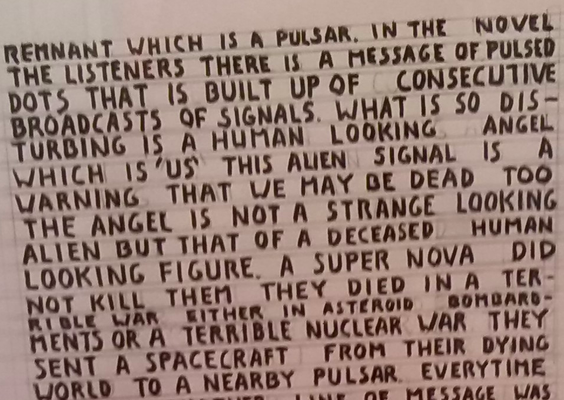 REMNANT WHICH IS A PULSAR. IN THE NOVEL
THE LISTENERS THERE IS A MESSAGE OF PULSED
DOTS THAT IS BUILT UP OF CONSECUTIVE
BROADCASTS OF SIGNALS. WHAT IS SO DIS-
TURBING IS A HUMAN LOOKING ANGEL
WHICH IS 'US' THIS ALIEN SIGNAL IS A
WARNING THAT WE MAY BE DEAD TOO
THE ANGEL IS NOT A STRANGE LOOKING
ALIEN BUT THAT OF A DECEASED HUMAN
LOOKING FIGURE. A SUPER NOVA DID
NOT KILL THEM THEY DIED IN A TER-
RIBLE WAR EITHER IN ASTEROID BOMBARD-
MENTS OR A TERRIBLE NUCLEAR WAR THEY
SENT A SPACECRAFT FROM THEIR DYING
WORLD TO A NEARBY PULSAR. EVERYTIME
LINE OF MESSAGE WAS